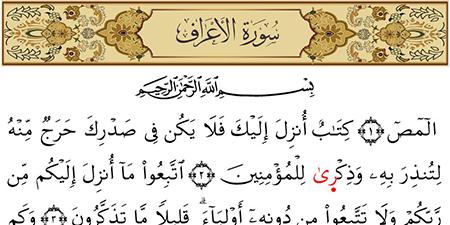 سُورَةُ الأَعْرَافِ
بِسْمِ اللَّهِ الرَّحْمَٰنِ الرَّحِيمِ
الٓمٓصٓ ﴿١﴾ كِتَابٌ أُنزِلَ إِلَيْكَ فَلَا يَكُن فِى صَدْرِكَ حَرَجٌ مِّنْهُ
لِتُنذِرَ بِهِۦ وَذِكْرَىٰ لِلْمُؤْمِنِينَ ﴿٢﴾ اتَّبِعُوا۟ مَآ أُنزِلَ إِلَيْكُم مِّن
رَّبِّكُمْ وَلَا تَتَّبِعُوا۟ مِن دُونِهِۦٓ أَوْلِيَآءَ ۗ قَلِيلًا مَّا تَذَكَّرُونَ ﴿٣﴾ وَكَم